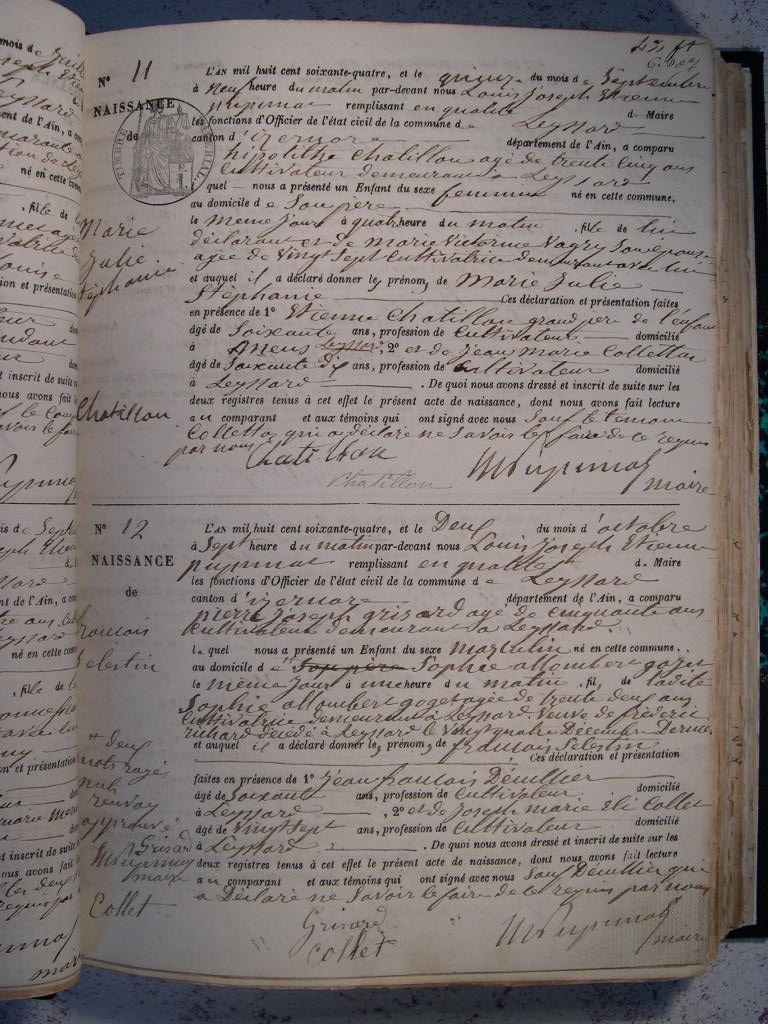 N° 11
NAISSANCE
de
Marie
Julie
Stéphanie
Chatillon
L'AN mil huit cent soixante-quatre, et le quinze du mois de Septembre
à neuf heure du matin par-devant nous Louis Joseph Etienne
remplissant en qualité de Maire
les fonctions d'Officier de l'état civil de la commune de Leyssard
canton d'izernore département de l'Ain, a comparu
hipolithe Chatillon agé de trente cinq ans
Cultivateur demeurant à Leyssard
quel nous a présenté un Enfant du sexe feminin né en cette commune,
au domicile de Son père
le même jour à quatre heure du matin, fille de lui
déclarant et de Marie Victorine Vagry Son épouse
agée de Vingt Sept Cultivatrice demeurant avec lui
et auquel il a déclaré donner les prénom, de Marie Julie
Stéphanie Ces déclaration et présentation faites
en présence de 1° Etienne Chatillon grand père de l'enfant
âgé de Soixante ans, profession de Cultivateur domicilié
à Leyssard, 2° et de Jean Marie Collettaz
âgé de Soixante Dix ans, profession de Cultivateur domicilié
à Leyssard. De quoi nous avons dressé et inscrit de suite sur les
deux registres tenus à cet effet le présent acte de naissance, dont nous avons fait lecture
au comparant et aux témoins qui ont signé avec nous Sauf le temoin
Collettaz qui a déclaré ne Savoir le faire de ce requis
par nous Chatillon
Chatillon maire
N° 12
NAISSANCE
de
francois
Selestin
deux
mots rayés
nul
renvoy
approuvé
Grisard
maire
Collet
L'AN mil huit cent soixante-quatre, et le Deux du mois d'octobre
à Sept heure du matin par-devant nous Louis Joseph Etienne
remplissant en qualité de Maire
les fonctions d'Officier de l'état civil de la commune de Leyssard
canton d'izernore département de l'Ain, a comparu
pierre Joseph grisard agé de cinquante ans
Cultivateur demeurant à Leyssard.
lequel nous a présenté un Enfant du sexe masculin né en cette commune.
au domicile de Sophie allombert goget
le même jour à une heure du matin, fil, de ladite
Sophie allombert goget agée de trente deux ans
Cultivatrice demeurant à Leyssard. Veuve de fréderic
richard décédé à Leyssard le Vingt quatre Décembre Dernier
et auquel il a déclaré donner les prénom, de francois Selestin
Ces déclaration et présentation
faites en présence de 1° Jean francois Deuillier
âgé de Soixante ans, profession de Cultivateur domicilié
à Leyssard, 2° et de Joseph marie Eli Collet
âgé de Vingt Sept ans, profession de Cultivateur domicilié
à Leyssard. De quoi nous avons dressé et inscrit de suite sur les
deux registres tenus à cet effet le présent acte de naissance, dont nous avons fait lecture
au comparant et aux témoins qui ont signé avec nous Sauf Deuillier qui
a Déclaré ne Savoir le faire de ce requis par nous
Grisard
Collet maire